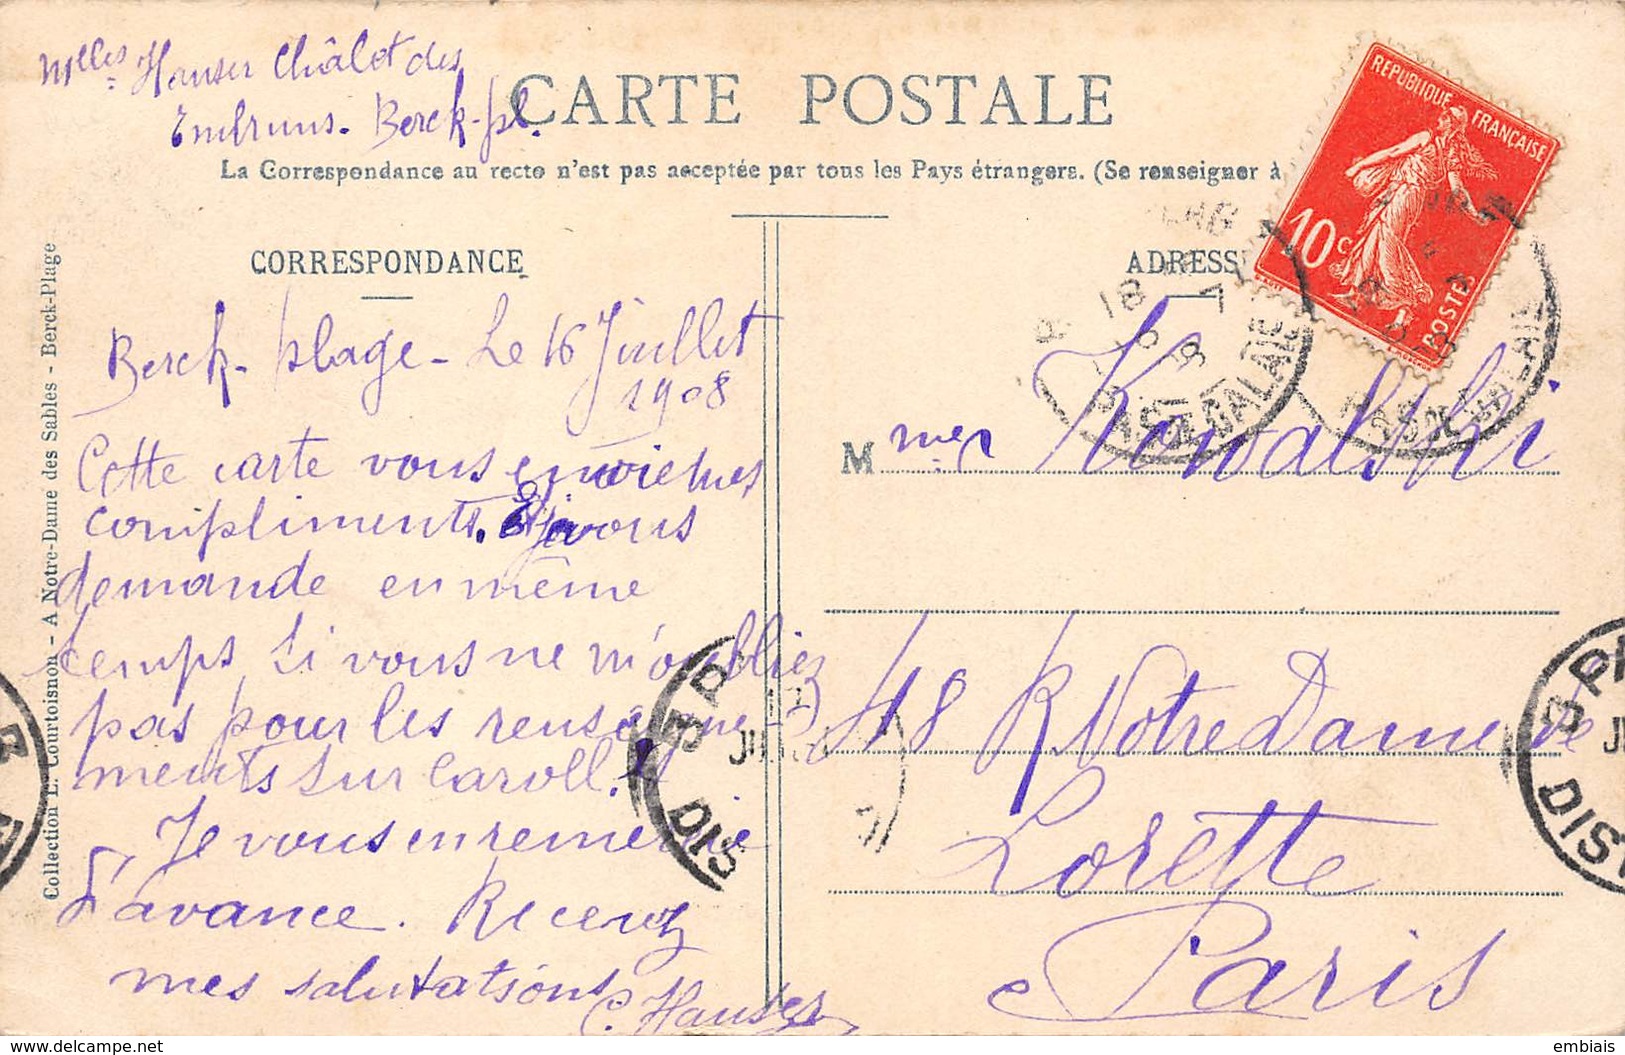 Mlles Hauser Châlet des
Embruns. Berck-pl.
CARTE POSTALE
La Correspondance au recto n'est pas acceptée par tous les Pays étrangers. (Se renseigner à
REPUBLIQUE FRANÇAISE
10c
POSTES
CORRESPONDANCE
ADRESS
Berck-plage-Le 16 Juillet
1908
Cette carte vous envoie mes
compliments. Et je vous
demande en même
temps, si vous ne m'oubliez
pas pour les renseigne-
ments sur Caroll.
Je vous en remercie
d'avance. Recevez
mes salutations
C. Hauser
M mes Kowalski
48 R Notre Dame de
Lorette
Paris
PAS DE CALAIS
18
PAS DE CALAIS
DIS
DIST
Collection E. Courtoisnon - A Notre-Dame des Sables - Berck-Plage
delcampe.net
embiais